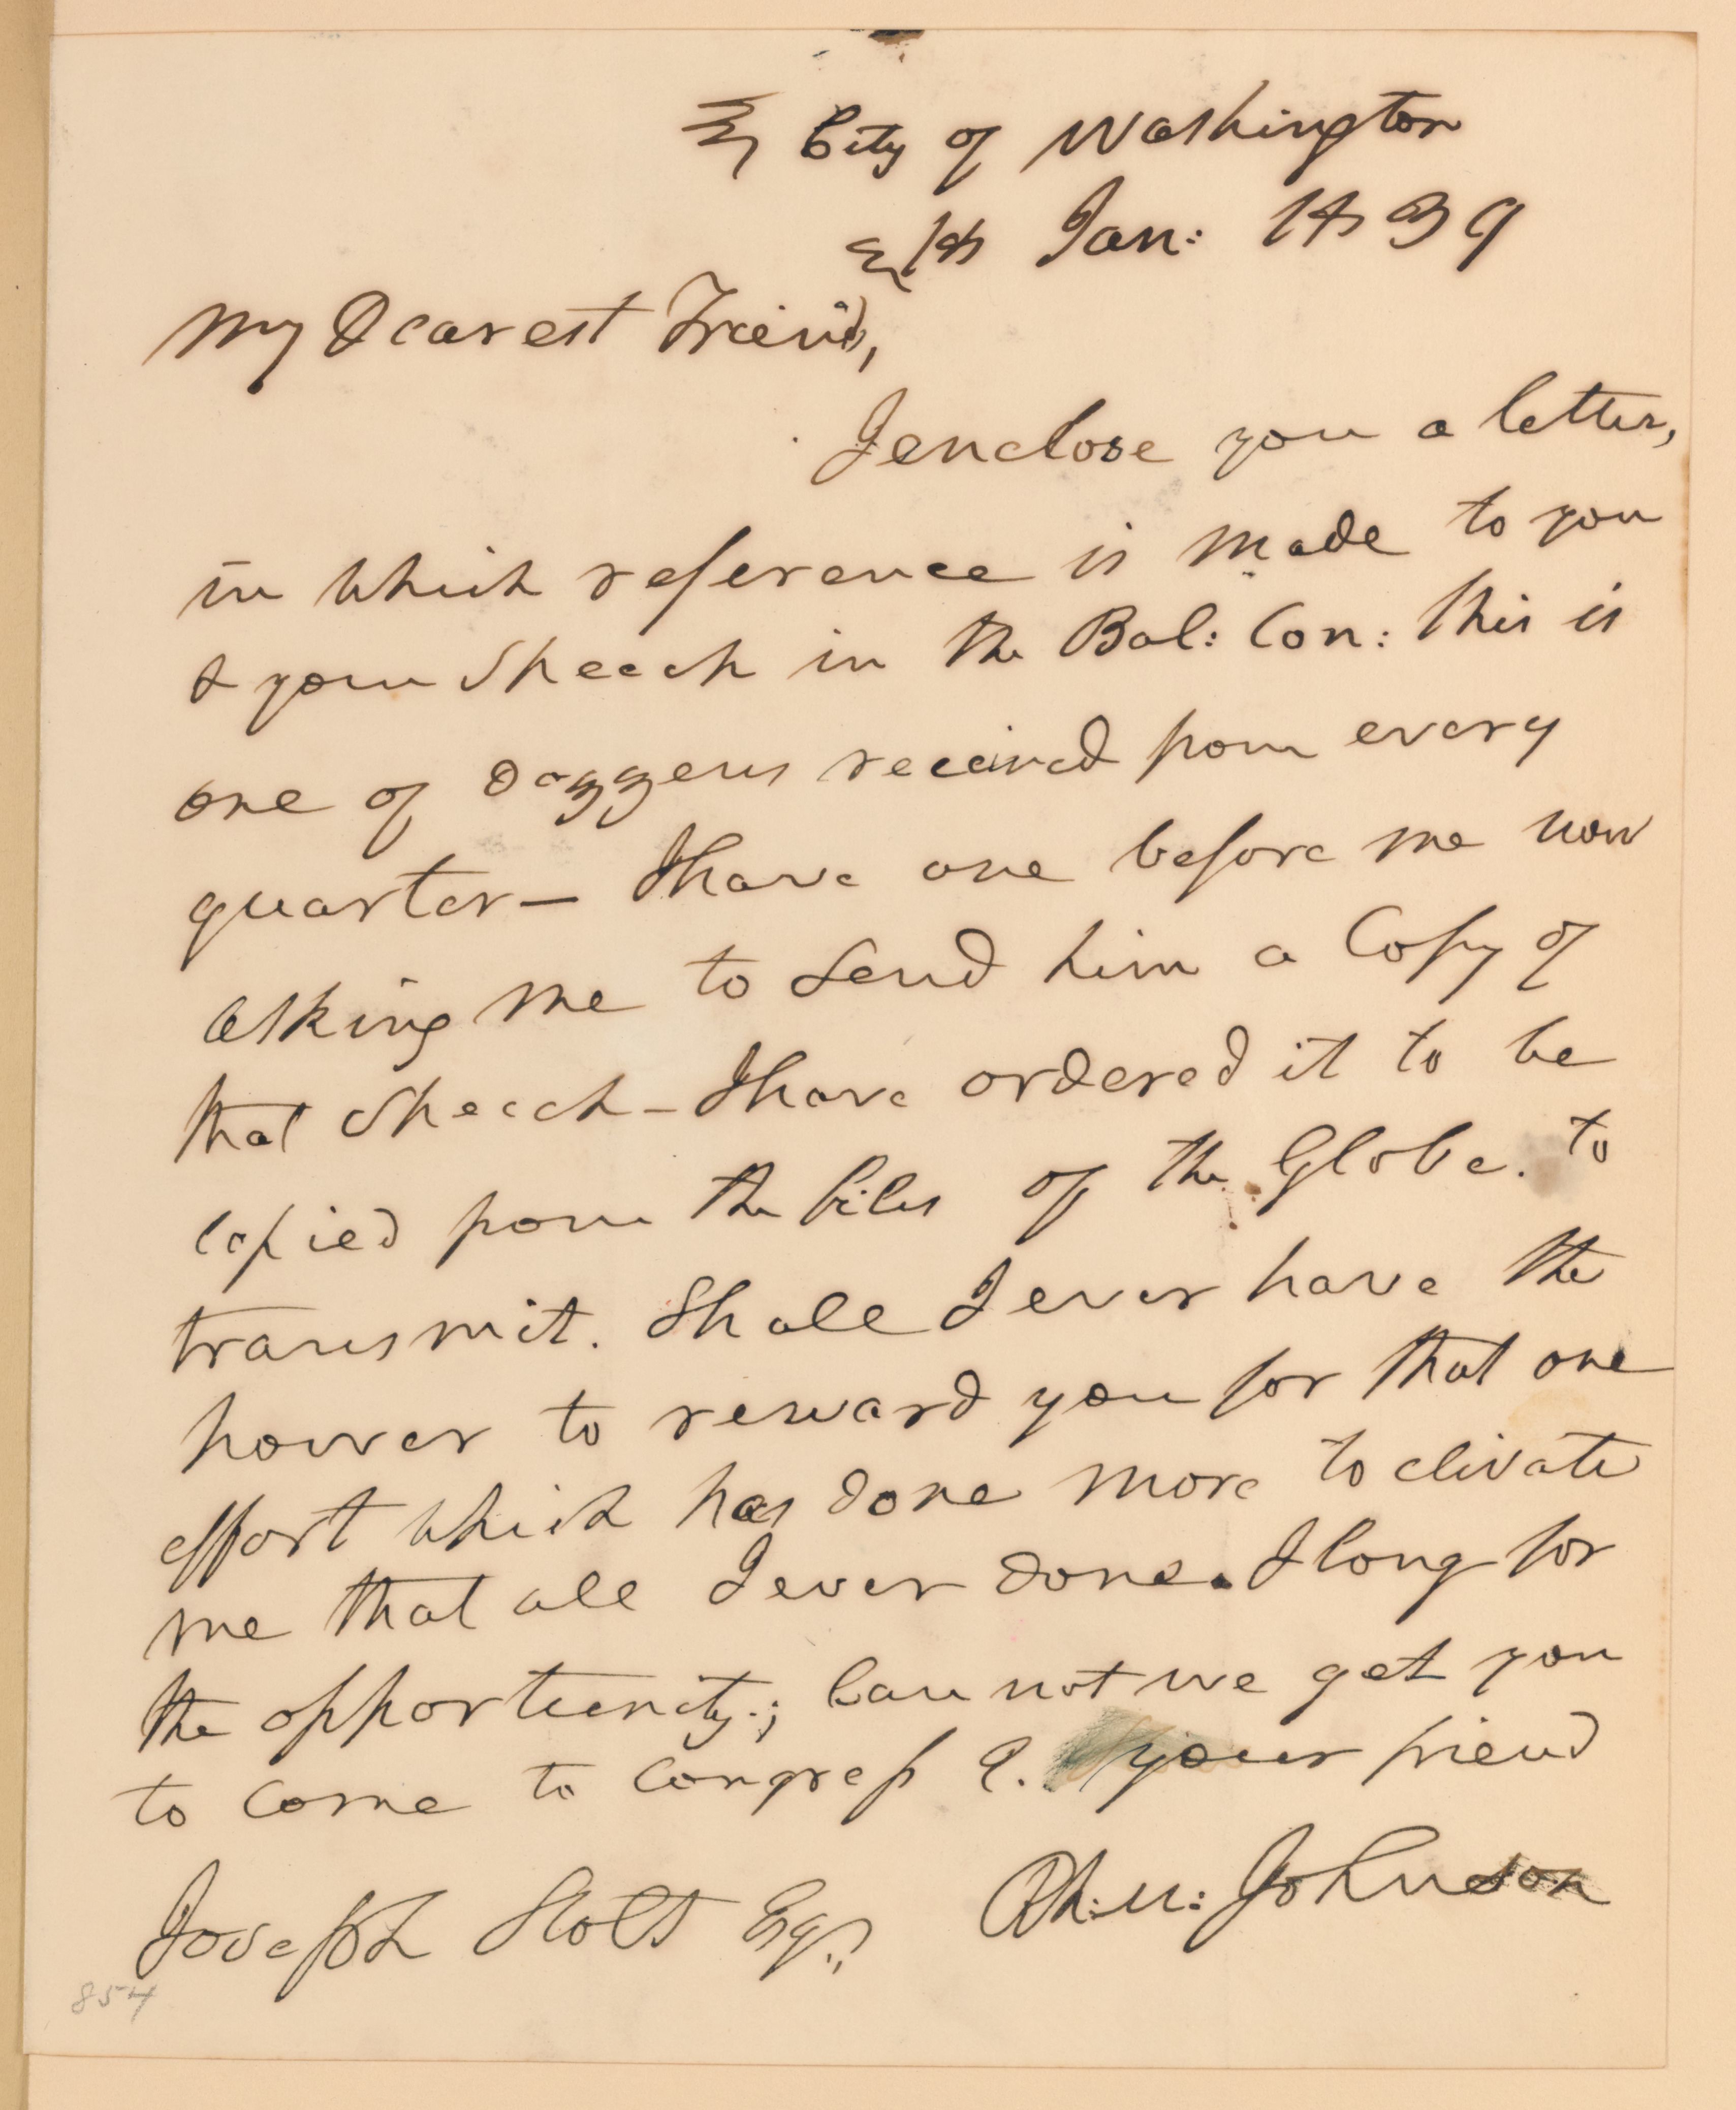 City of Washington
18 Jan: 1839
My Dearest Freind,
I enclose you a letter,
in which reference is made to you
& your Speech in the Bal: Con: this is
one of Doggens received from every
quarter — I have one before me now
asking me to send him a Copy of
that Speech — I have ordered it to be
copied from the files of the Globe. to
transmit. Shall I ever have the
power to reward you for that one
effort which has done more to elivate
me that all I ever done. I long for
the opportunity.; Can not we get you
to come to Congress?. your friend
Joseph Holt Esq., Rh: M: Johnson
854